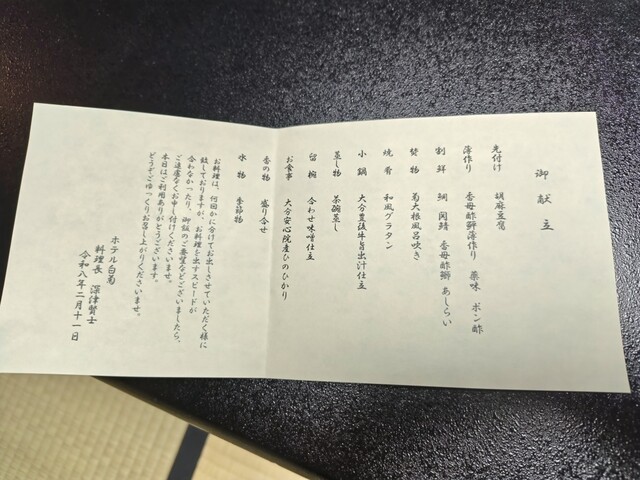 御献立
先付け　胡麻豆腐
薄作り　香母酢鰤薄作り　薬味　ポン酢
割鮮　鯛　関鯖　香母酢鰤　あしらい
焚物　菊大根風呂吹き
焼肴　和風グラタン
小鍋　大分豊後牛旨出汁仕立
蒸し物　茶碗蒸し
留椀　合わせ味噌仕立
お食事　大分安心院産ひのひかり
香の物　盛り合せ
水物　季節物
お料理は、何回かに分けてお出しさせていただく様に
致しておりますが、お料理を出すスピードが
合わなかったり、御飯のご要望などございましたら、
ご遠慮なくお申し付けくださいませ。
本日はご利用ありがとうございます。
どうぞごゆっくりお召し上がりくださいませ。
ホテル白菊
料理長　深津賢士
令和八年二月十一日